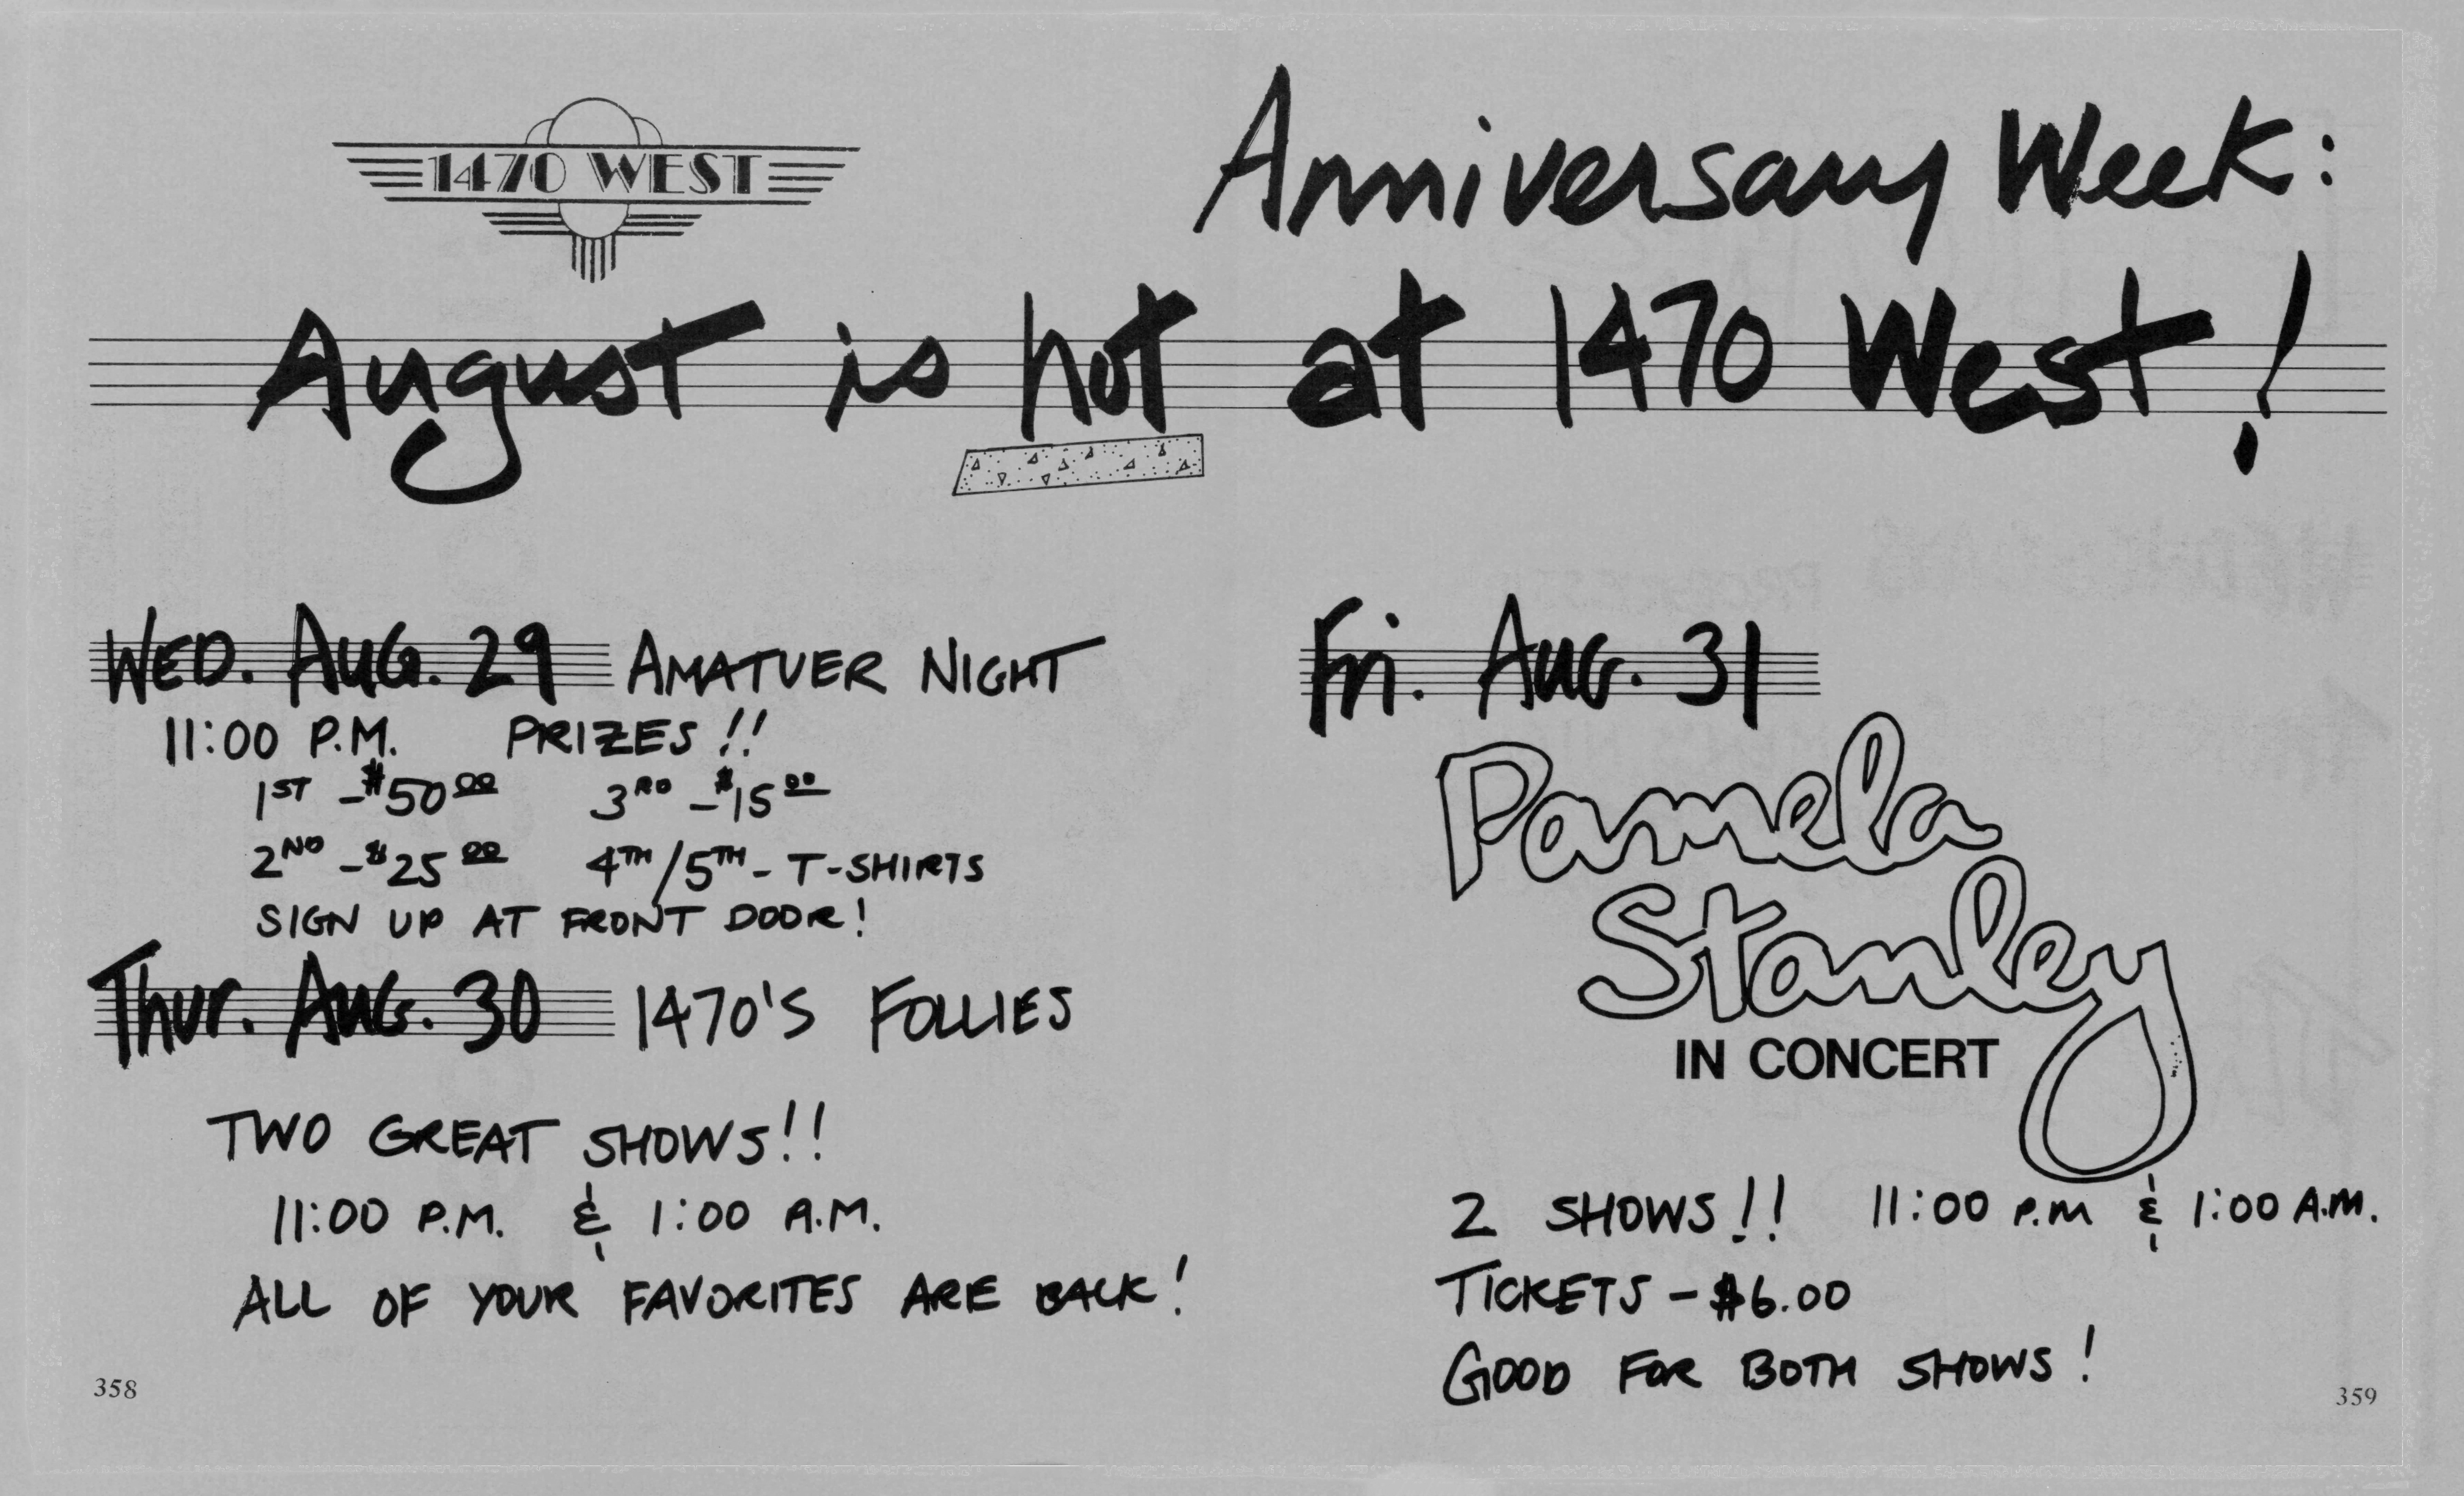 1470 WEST
Anniversary Week:
August is hot at 1470 West!
WED. AUG. 29 AMATUER NIGHT
11:00 P.M. PRIZES!!
1ST -$50 00 3RD -$15 00
2ND -$25 00 4TH/5TH- T-SHIRTS
SIGN UP AT FRONT DOOR!
Thur. AUG. 30 1470'S FOLLIES
TWO GREAT SHOWS!!
11:00 P.M. & 1:00 A.M.
ALL OF YOUR FAVORITES ARE BACK!
358
Fri. AUG. 31
Pamela
Stanley
IN CONCERT
2 SHOWS!! 11:00 P.M & 1:00 A.M.
TICKETS - $6.00
GOOD FOR BOTH SHOWS!
359